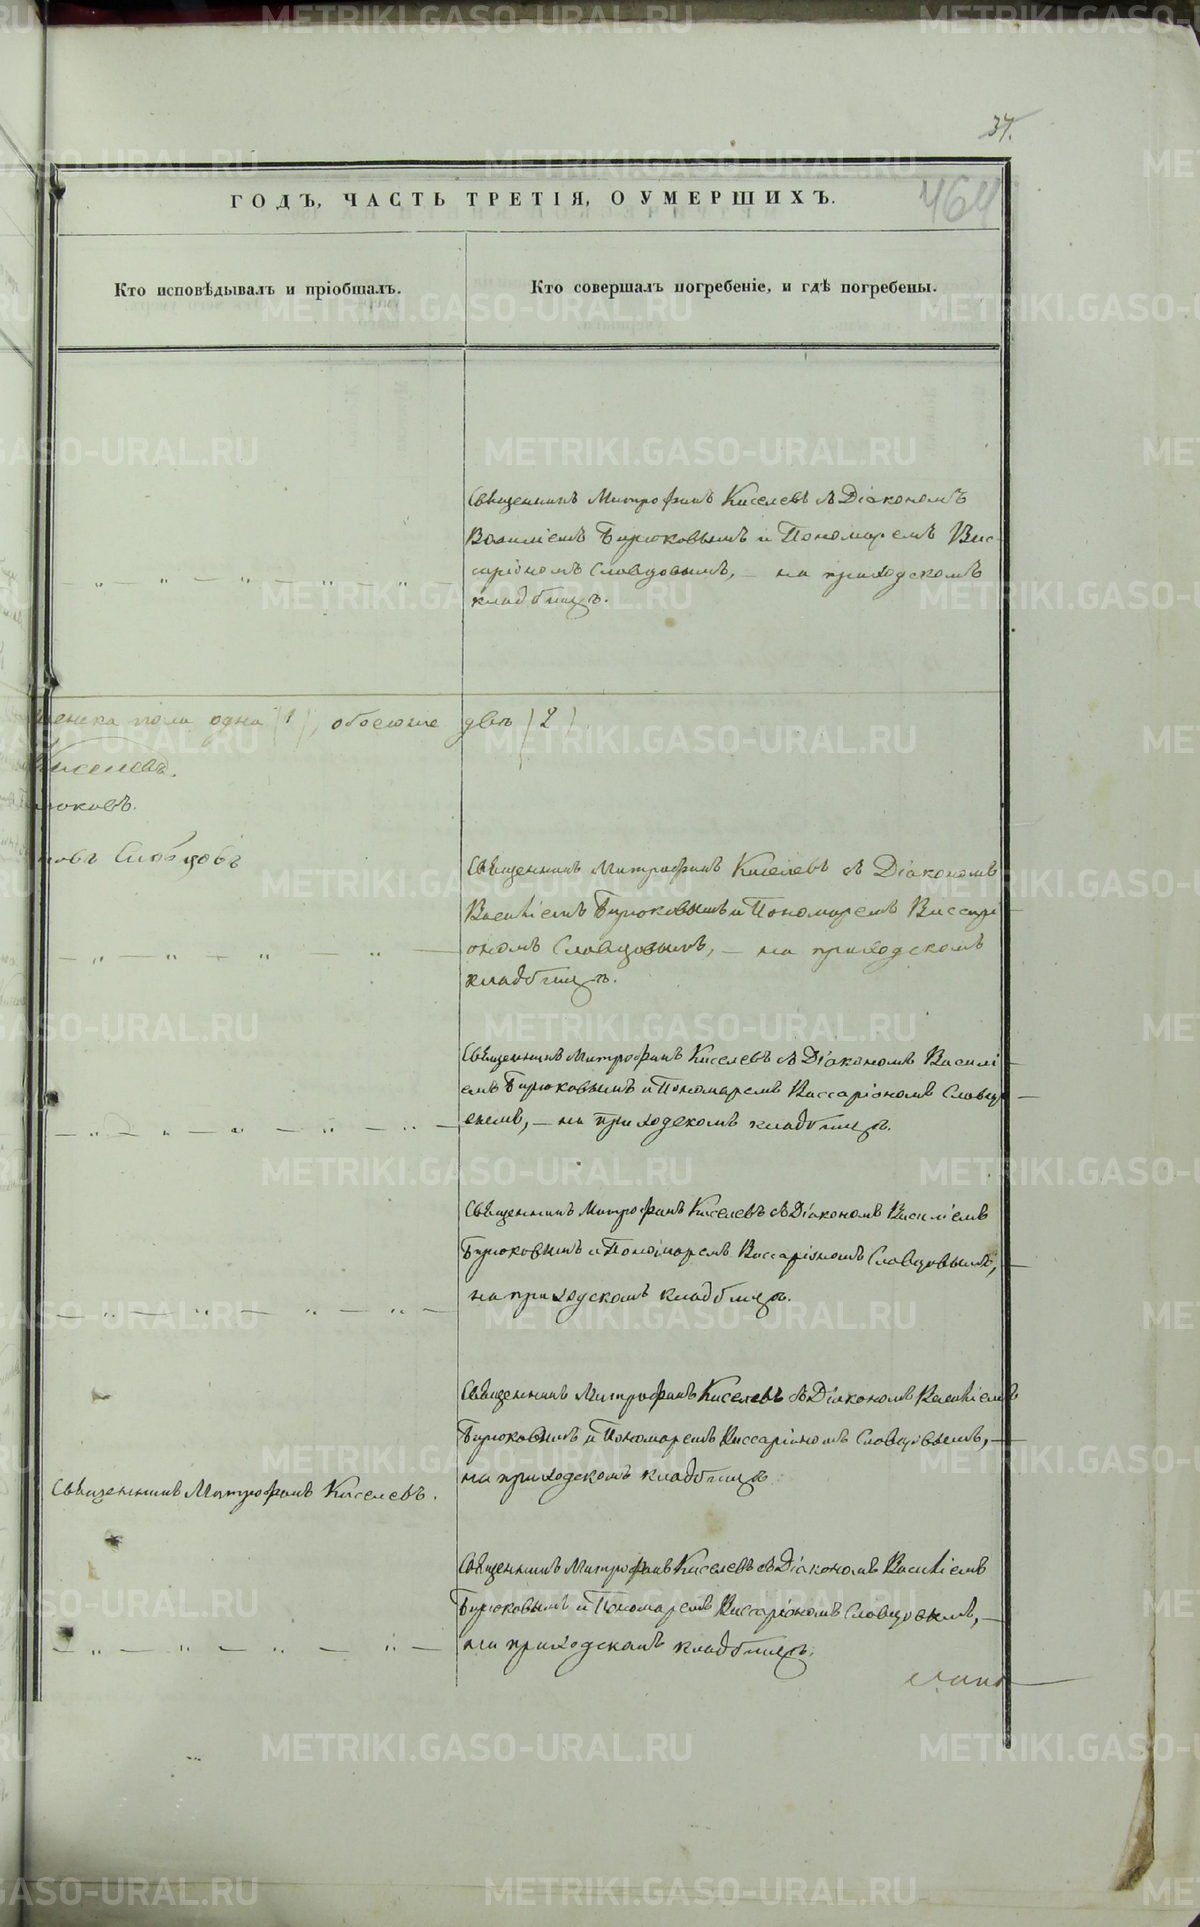 37.
464
ГОДЪ, ЧАСТЬ ТРЕТІЯ, О УМЕРШИХЪ.
Кто исповѣдывалъ и пріобщалъ.
Кто совершалъ погребеніе, и гдѣ погребены.
Священникъ Митрофанъ Киселевъ съ Діакономъ
Василіемъ Бирюковымъ и Пономаремъ Вис-
саріономъ Словцовымъ, — на приходскомъ
кладбищѣ.
женска пола одна (1), обоегоже двѣ (2)
Киселевъ.
рюковъ.
Словцовъ
Священникъ Митрофанъ Киселевъ съ Діакономъ
Василіемъ Бирюковымъ и Пономаремъ Виссарі-
ономъ Словцовымъ, — на приходскомъ
кладбищѣ.
Священникъ Митрофанъ Киселевъ съ Діакономъ Василі-
емъ Бирюковымъ и Пономаремъ Виссаріономъ Словцо-
вымъ, — на приходскомъ кладбищѣ.
Священникъ Митрофанъ Киселевъ съ Діакономъ Василіемъ
Бирюковымъ и Пономаремъ Виссаріономъ Словцовымъ, —
на приходскомъ кладбищѣ.
Священникъ Митрофанъ Киселевъ съ Діакономъ Василіемъ
Бирюковымъ и Пономаремъ Виссаріономъ Словцовымъ, —
на приходскомъ кладбищѣ
Священникъ Митрофанъ Киселевъ.
Священникъ Митрофанъ Киселевъ съ Діакономъ Василіемъ
Бирюковымъ и Пономаремъ Виссаріономъ Словцовымъ, —
на приходскомъ кладбищѣ.
METRIKI.GASO-URAL.RU